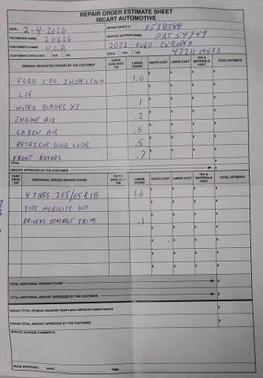 REPAIR ORDER ESTIMATE SHEET
RICART AUTOMOTIVE
DATE 2-4-2026
REPAIR ORDER # 3538388
TECHNICIAN NAME 20626
SERVICE ADVISOR NAME PRT 54749
CUSTOMER'S NAME U.C.D
2023 FORD EXPLORER
CUSTOMER CONTACTED YES NO
47211 MILES
ORIGINAL REQUESTED REPAIRS BY THE CUSTOMER PARTS AVAILABLE Y/N LABOR HOURS PARTS COST LABOR COST TAX & MATERIALS COST TOTAL ESTIMATE
FORD CPO INSPECTION 1.0
LOF
WIPER BLADES X2 .1
ENGINE AIR .2
CABIN AIR .5
DOOR .5
FRONT ROTORS .7
TOTAL
AMOUNT APPROVED BY THE CUSTOMER
ADDITIONAL NEEDED REPAIRS FOUND LABOR HOURS PARTS COST LABOR COST TAX & MATERIALS COST TOTAL ESTIMATE
4 TIRES 255/65R18 1.6
TIRE MOBILITY KIT
DRIVERS SEATBELT TRIM .1
TOTAL ADDITIONAL REPAIRS
TOTAL ADDITIONAL AMOUNT APPROVED BY THE CUSTOMER
GRAND TOTAL
GRAND TOTAL AMOUNT APPROVED BY THE CUSTOMER
SERVICE ADVISOR COMMENTS:
WORK APPROVED: DATE TIME